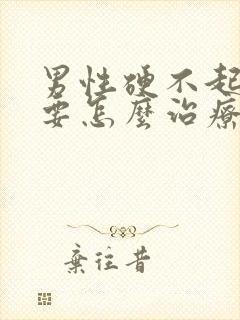 男性硬不起
要怎麼治療
棄往昔